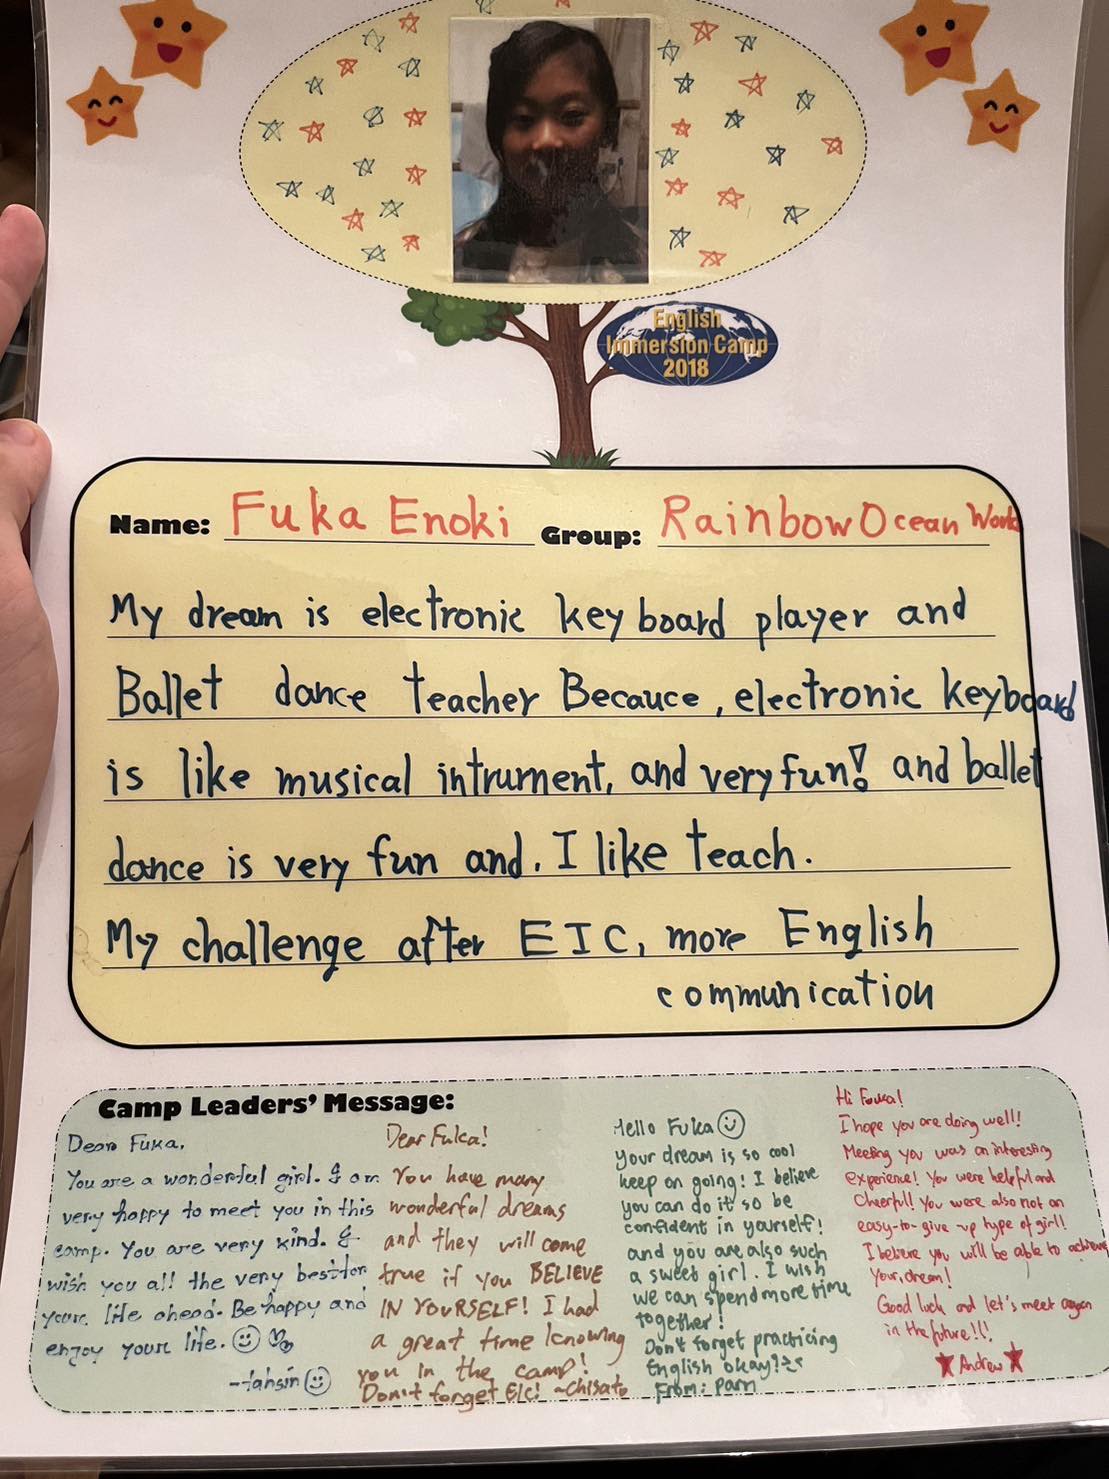 English
Immersion Camp
2018
Name: Fuka Enoki Group: Rainbow Ocean World
My dream is electronic keyboard player and
Ballet dance teacher Becauce, electronic keyboard
is like musical intrument, and very fun! and ballet
dance is very fun and. I like teach.
My challenge after EIC, more English
communication
Camp Leaders' Message:
Dear Fuka,
You are a wonderful girl. I am
very happy to meet you in this
camp. You are very kind. I
wish you all the very best for
your life ahead. Be happy and
enjoy your life.
-tahsin
Dear Fuka!
You have many
wonderful dreams
and they will come
true if you BELIEVE
IN YOURSELF! I had
a great time knowing
you in the camp!
Don't forget EIC! ~Chisato
Hello Fuka
your dream is so cool
keep on going! I believe
you can do it so be
confident in yourself!
and you are also such
a sweet girl. I wish
we can spend more time
together!
Don't forget practicing
English okay?
From: Parn
Hi Fuka!
I hope you are doing well!
Meeting you was an interesting
experience! You were helpful and
Cheerful! You were also not an
easy-to-give-up type of girl!
I believe you will be able to achieve
Your dream!
Good luck and let's meet again
in the future!!!
Andrew